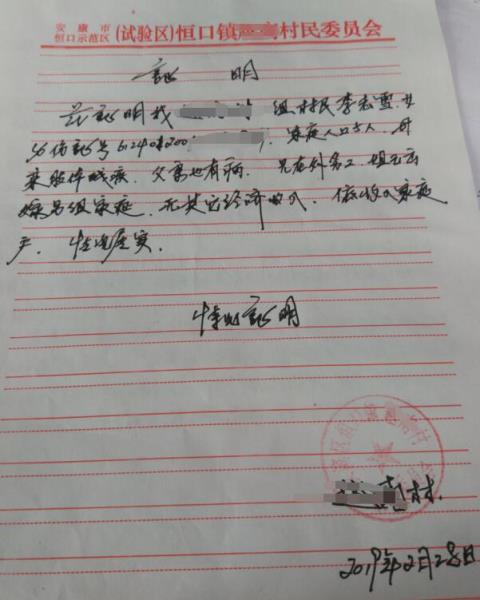 安康市恒口示范区(试验区)恒口镇 村民委员会
证 明
兹证明我 组村民李宏雪,女
身份证号612401200 ,家庭人口5人,母
亲肢体残疾,父亲也有病,兄在外务工,姐已出
嫁另组家庭,无其它经济收入,低收入家庭
户,情况属实。
特此证明
村
2019年2月28日